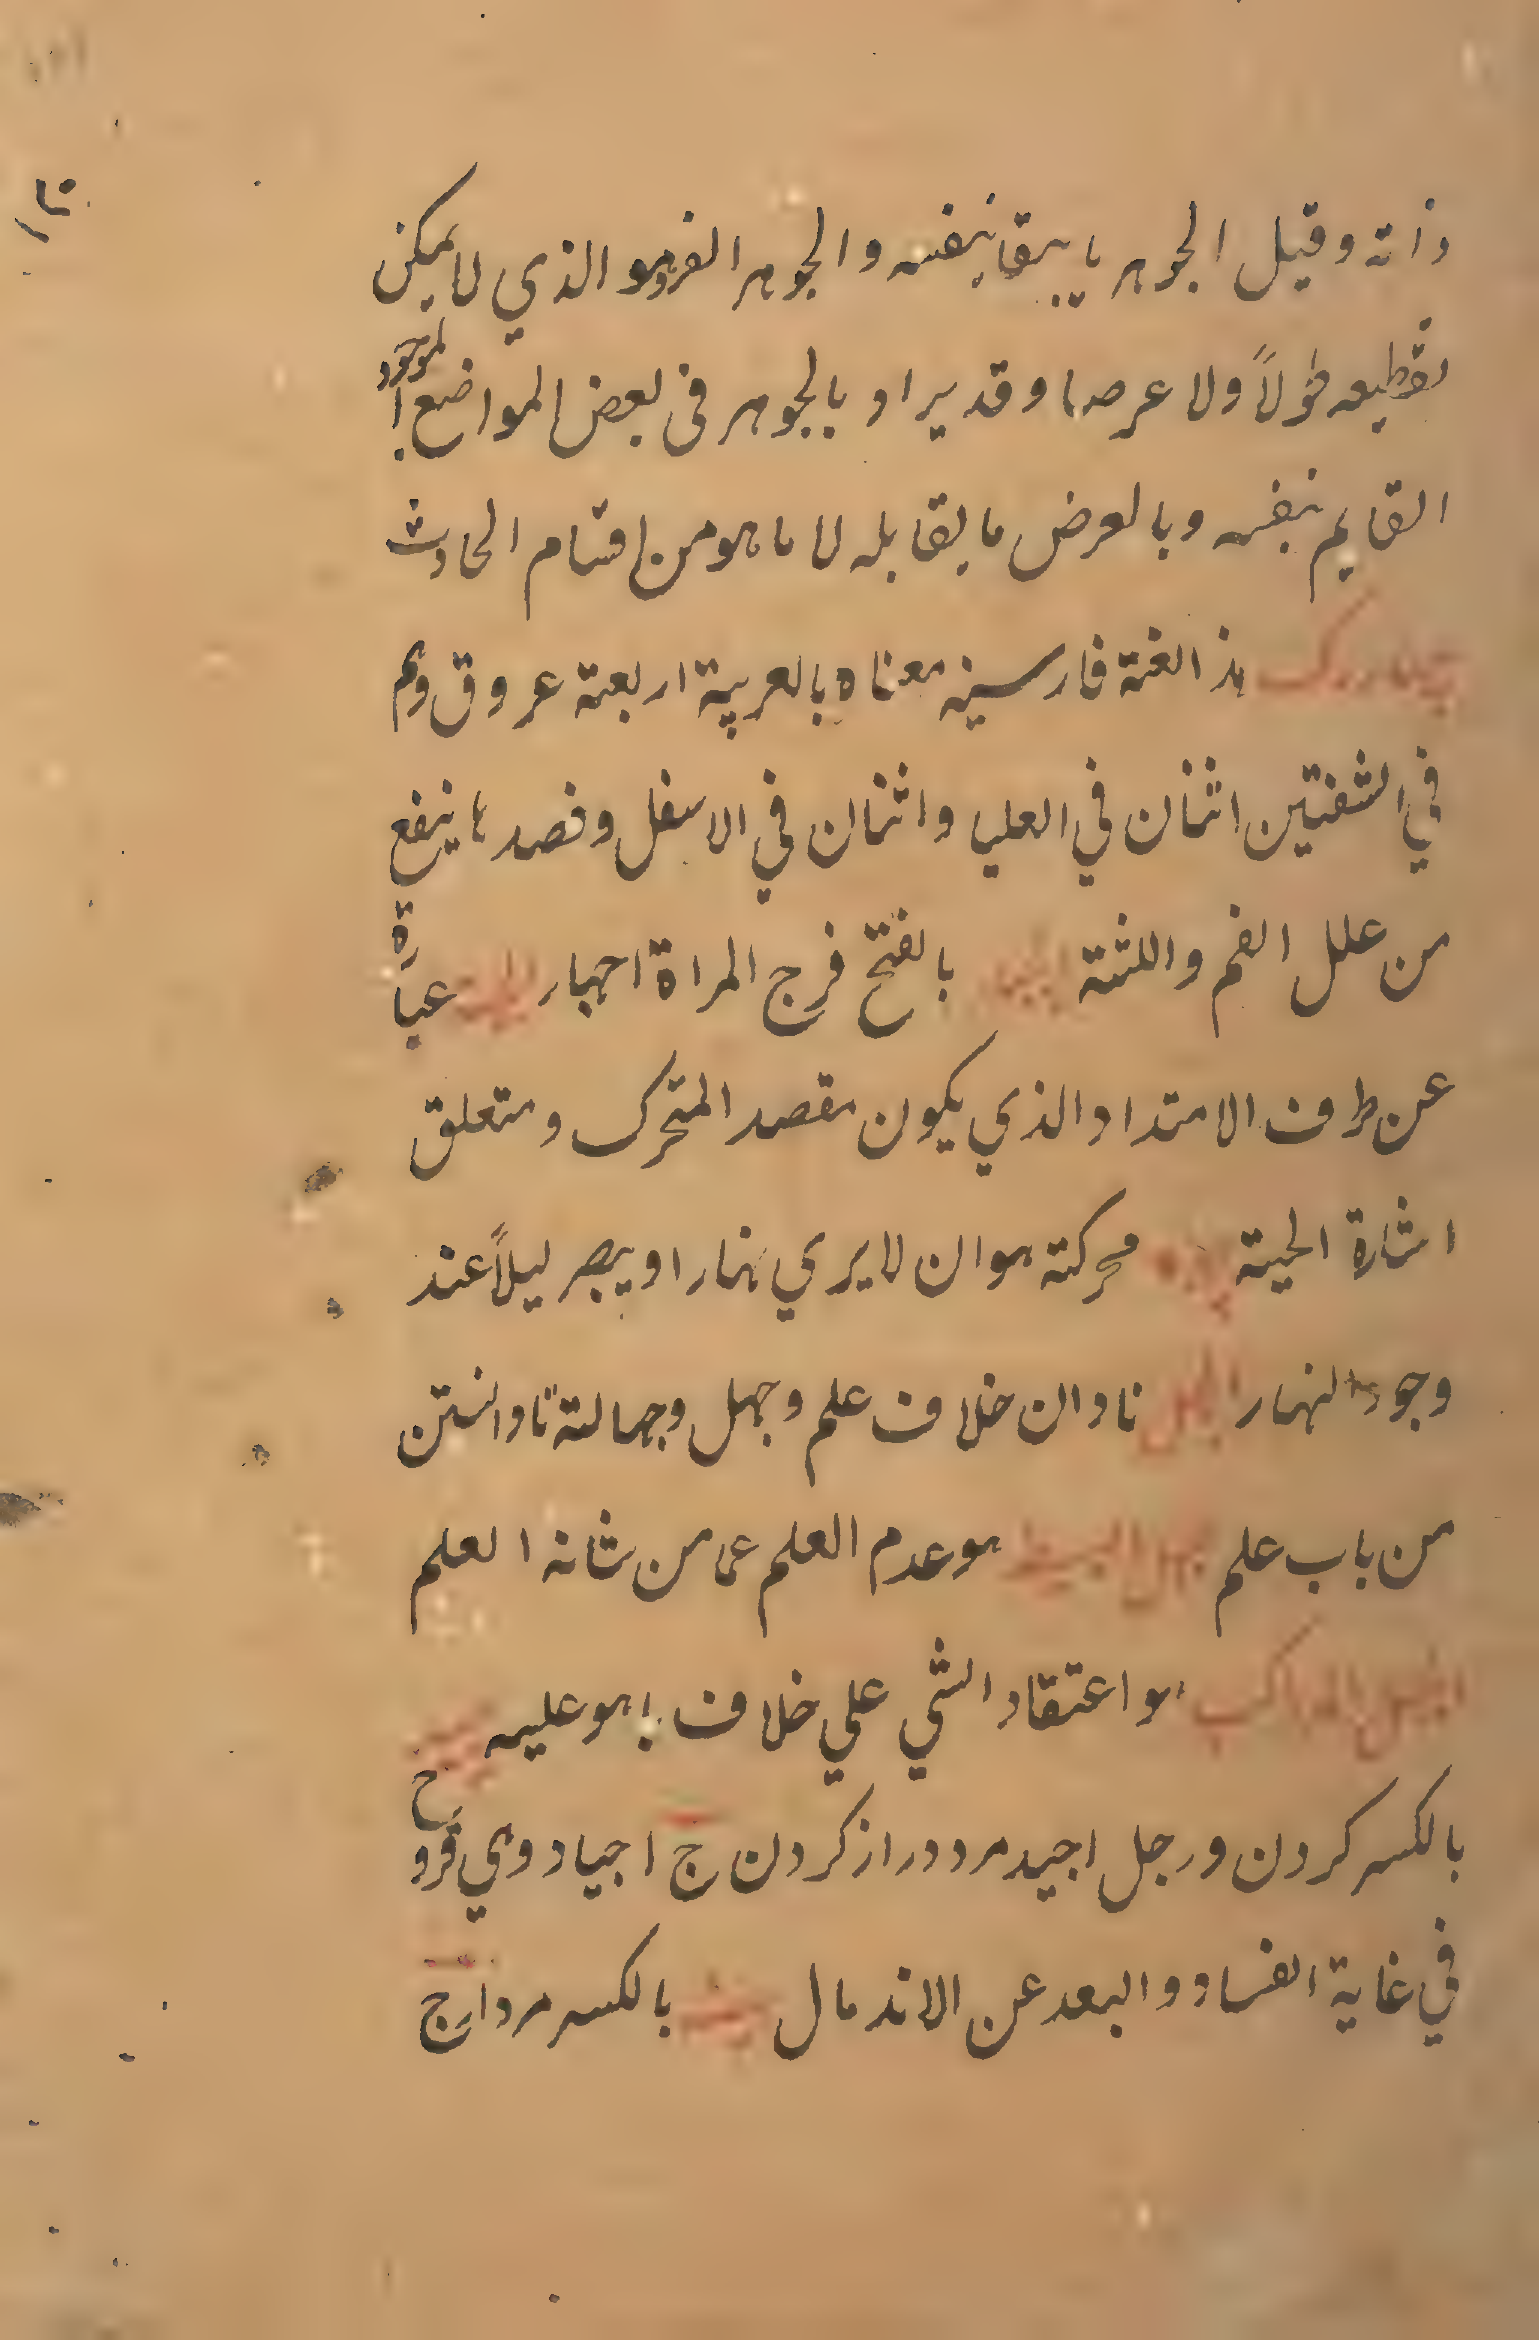 ذاته وقيل الجوهر ما يبقا بنفسه والجوهر الفرد هو الذي لا يمكن
تقطيعه طولاً ولا عرضا وقد يراد بالجوهر في بعض المواضع الموجود
القايم بنفسه وبالعرض ما يقابله لا ما هو من اقسام الحادث
چهاررك هذا لغة فارسية معناه بالعربية اربعة عروق وهي
في الشفتين اثنان في العليا واثنان في الاسفل وفصدها ينفع
من علل الفم واللثة بالفتح فرج المراة اجهار عبارة
عن طرف الامتداد الذي يكون مقصد المتحرك ومتعلق
اشارة الحية محركة هو ان لا يري نهارا ويبصر ليلاً عند
وجود النهار الجهل نادان خلاف علم وجهل وجهالة نادانستن
من باب علم جهل البسيط هو عدم العلم عما من شانه العلم
الجهل المركب هو اعتقاد الشي علي خلاف ما هو عليه
بالكسر كردن ورجل اجيد مرد دراز كردن ج اجياد وهي قروح
في غاية الفساد والبعد عن الاندمال بالكسر مردار ج